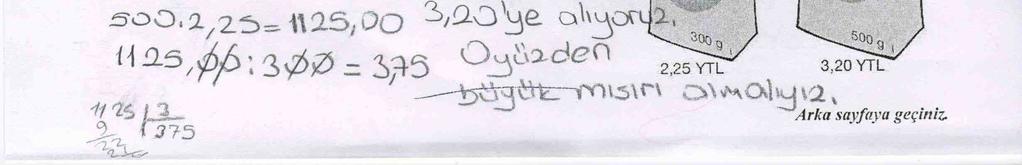 500.2,25=1125,00 3,20'ye alıyoruz.
1125,00:300=3,75 Oyüzden
büyük mısırı almalıyız.
1125 3
9 375
300 g
2,25 YTL
500 g
3,20 YTL
Arka sayfaya geçiniz.